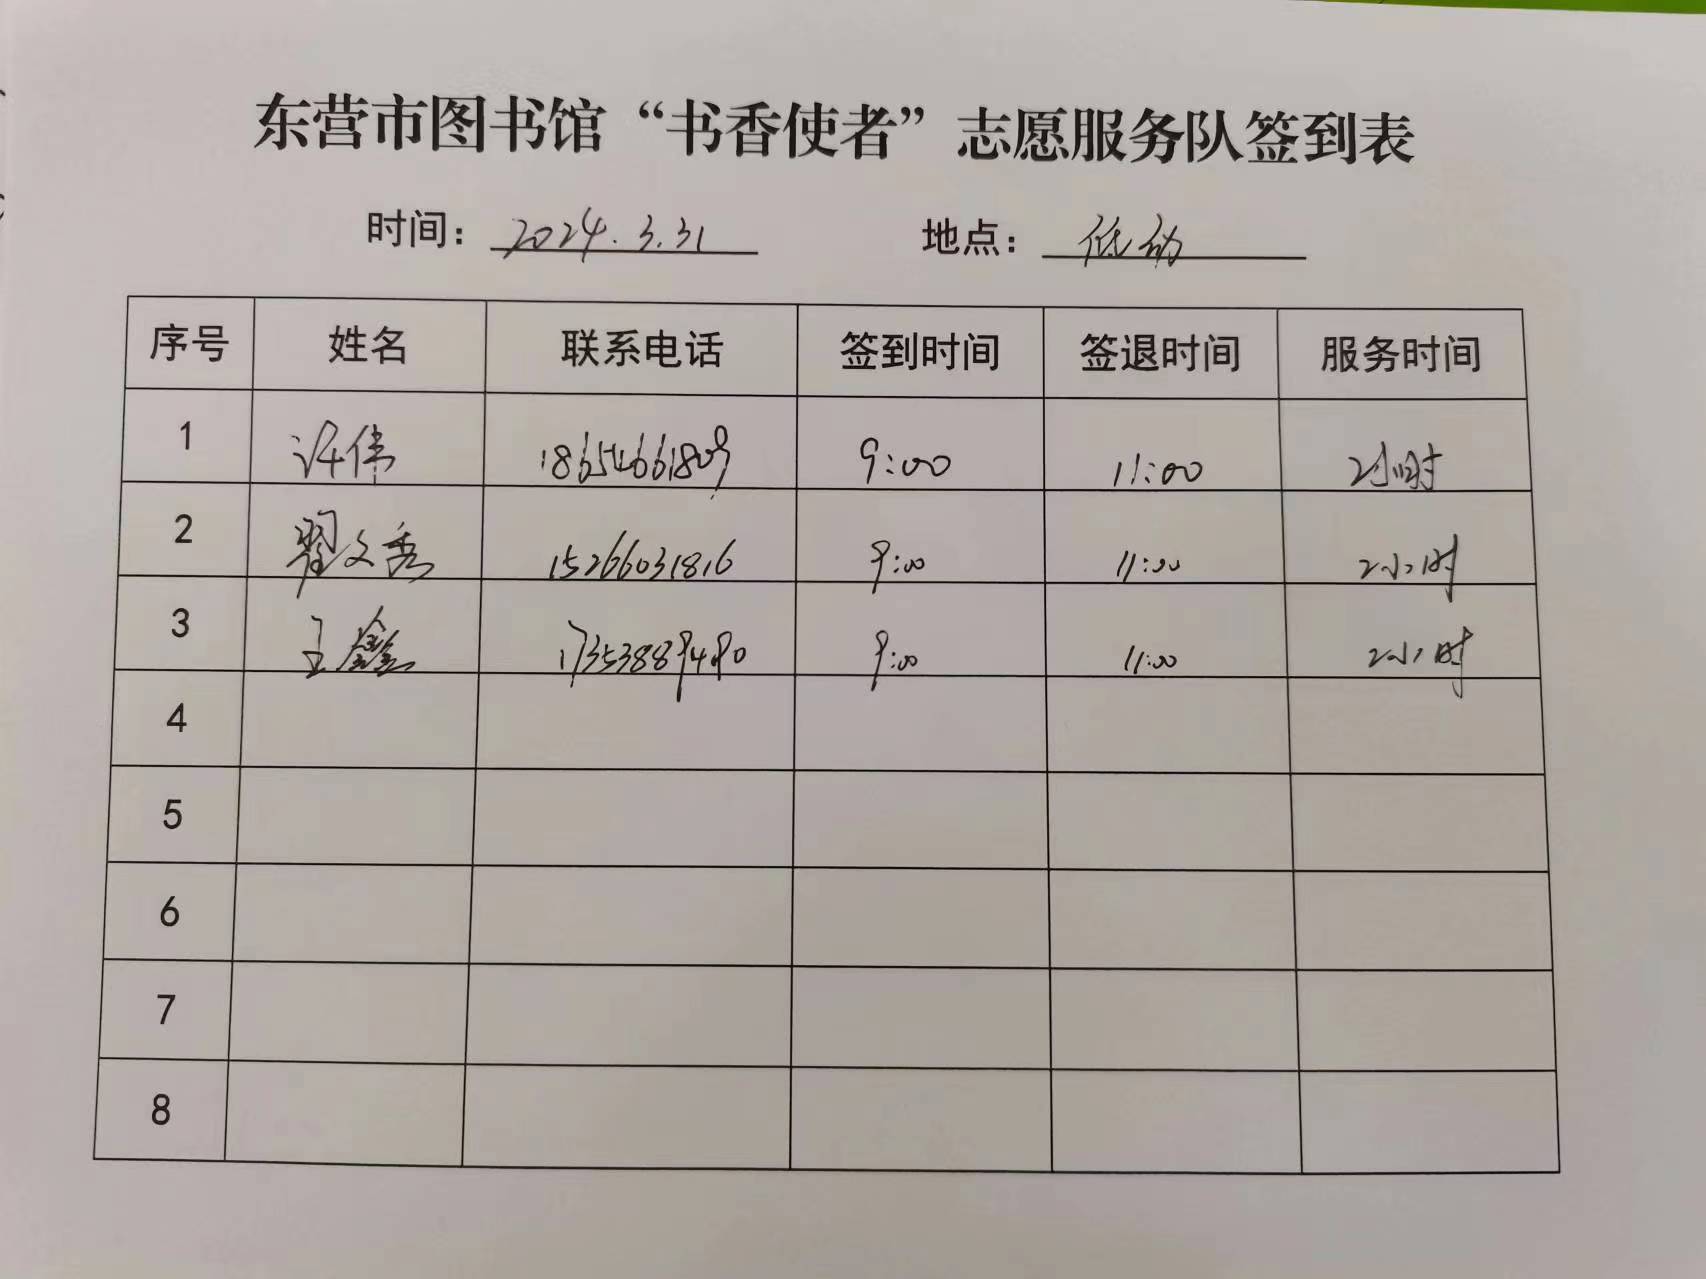 东营市图书馆“书香使者”志愿服务队签到表
时间：2024.3.31 地点：低幼
序号 姓名 联系电话 签到时间 签退时间 服务时间
1 许伟 18654661809 9:00 11:00 2小时
2 翟文秀 15266031816 9:00 11:00 2小时
3 王鑫 17353889490 9:00 11:00 2小时
4
5
6
7
8